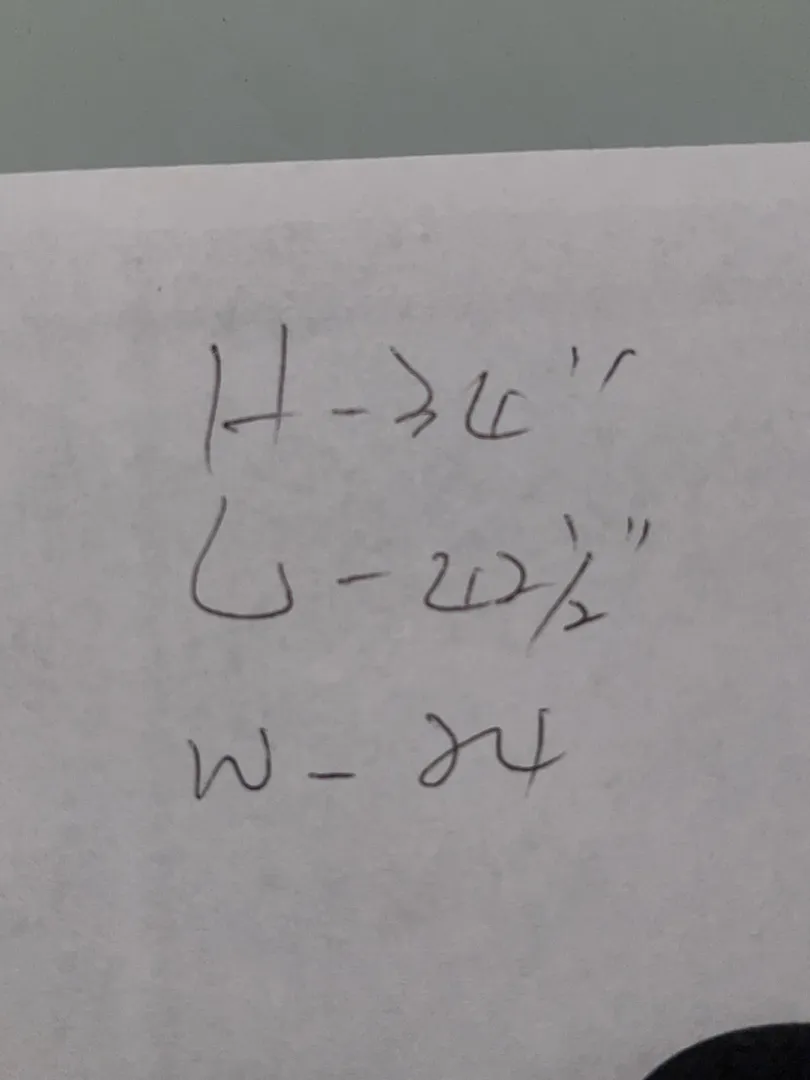 H - 34"
L - 42 1/2"
W - 24